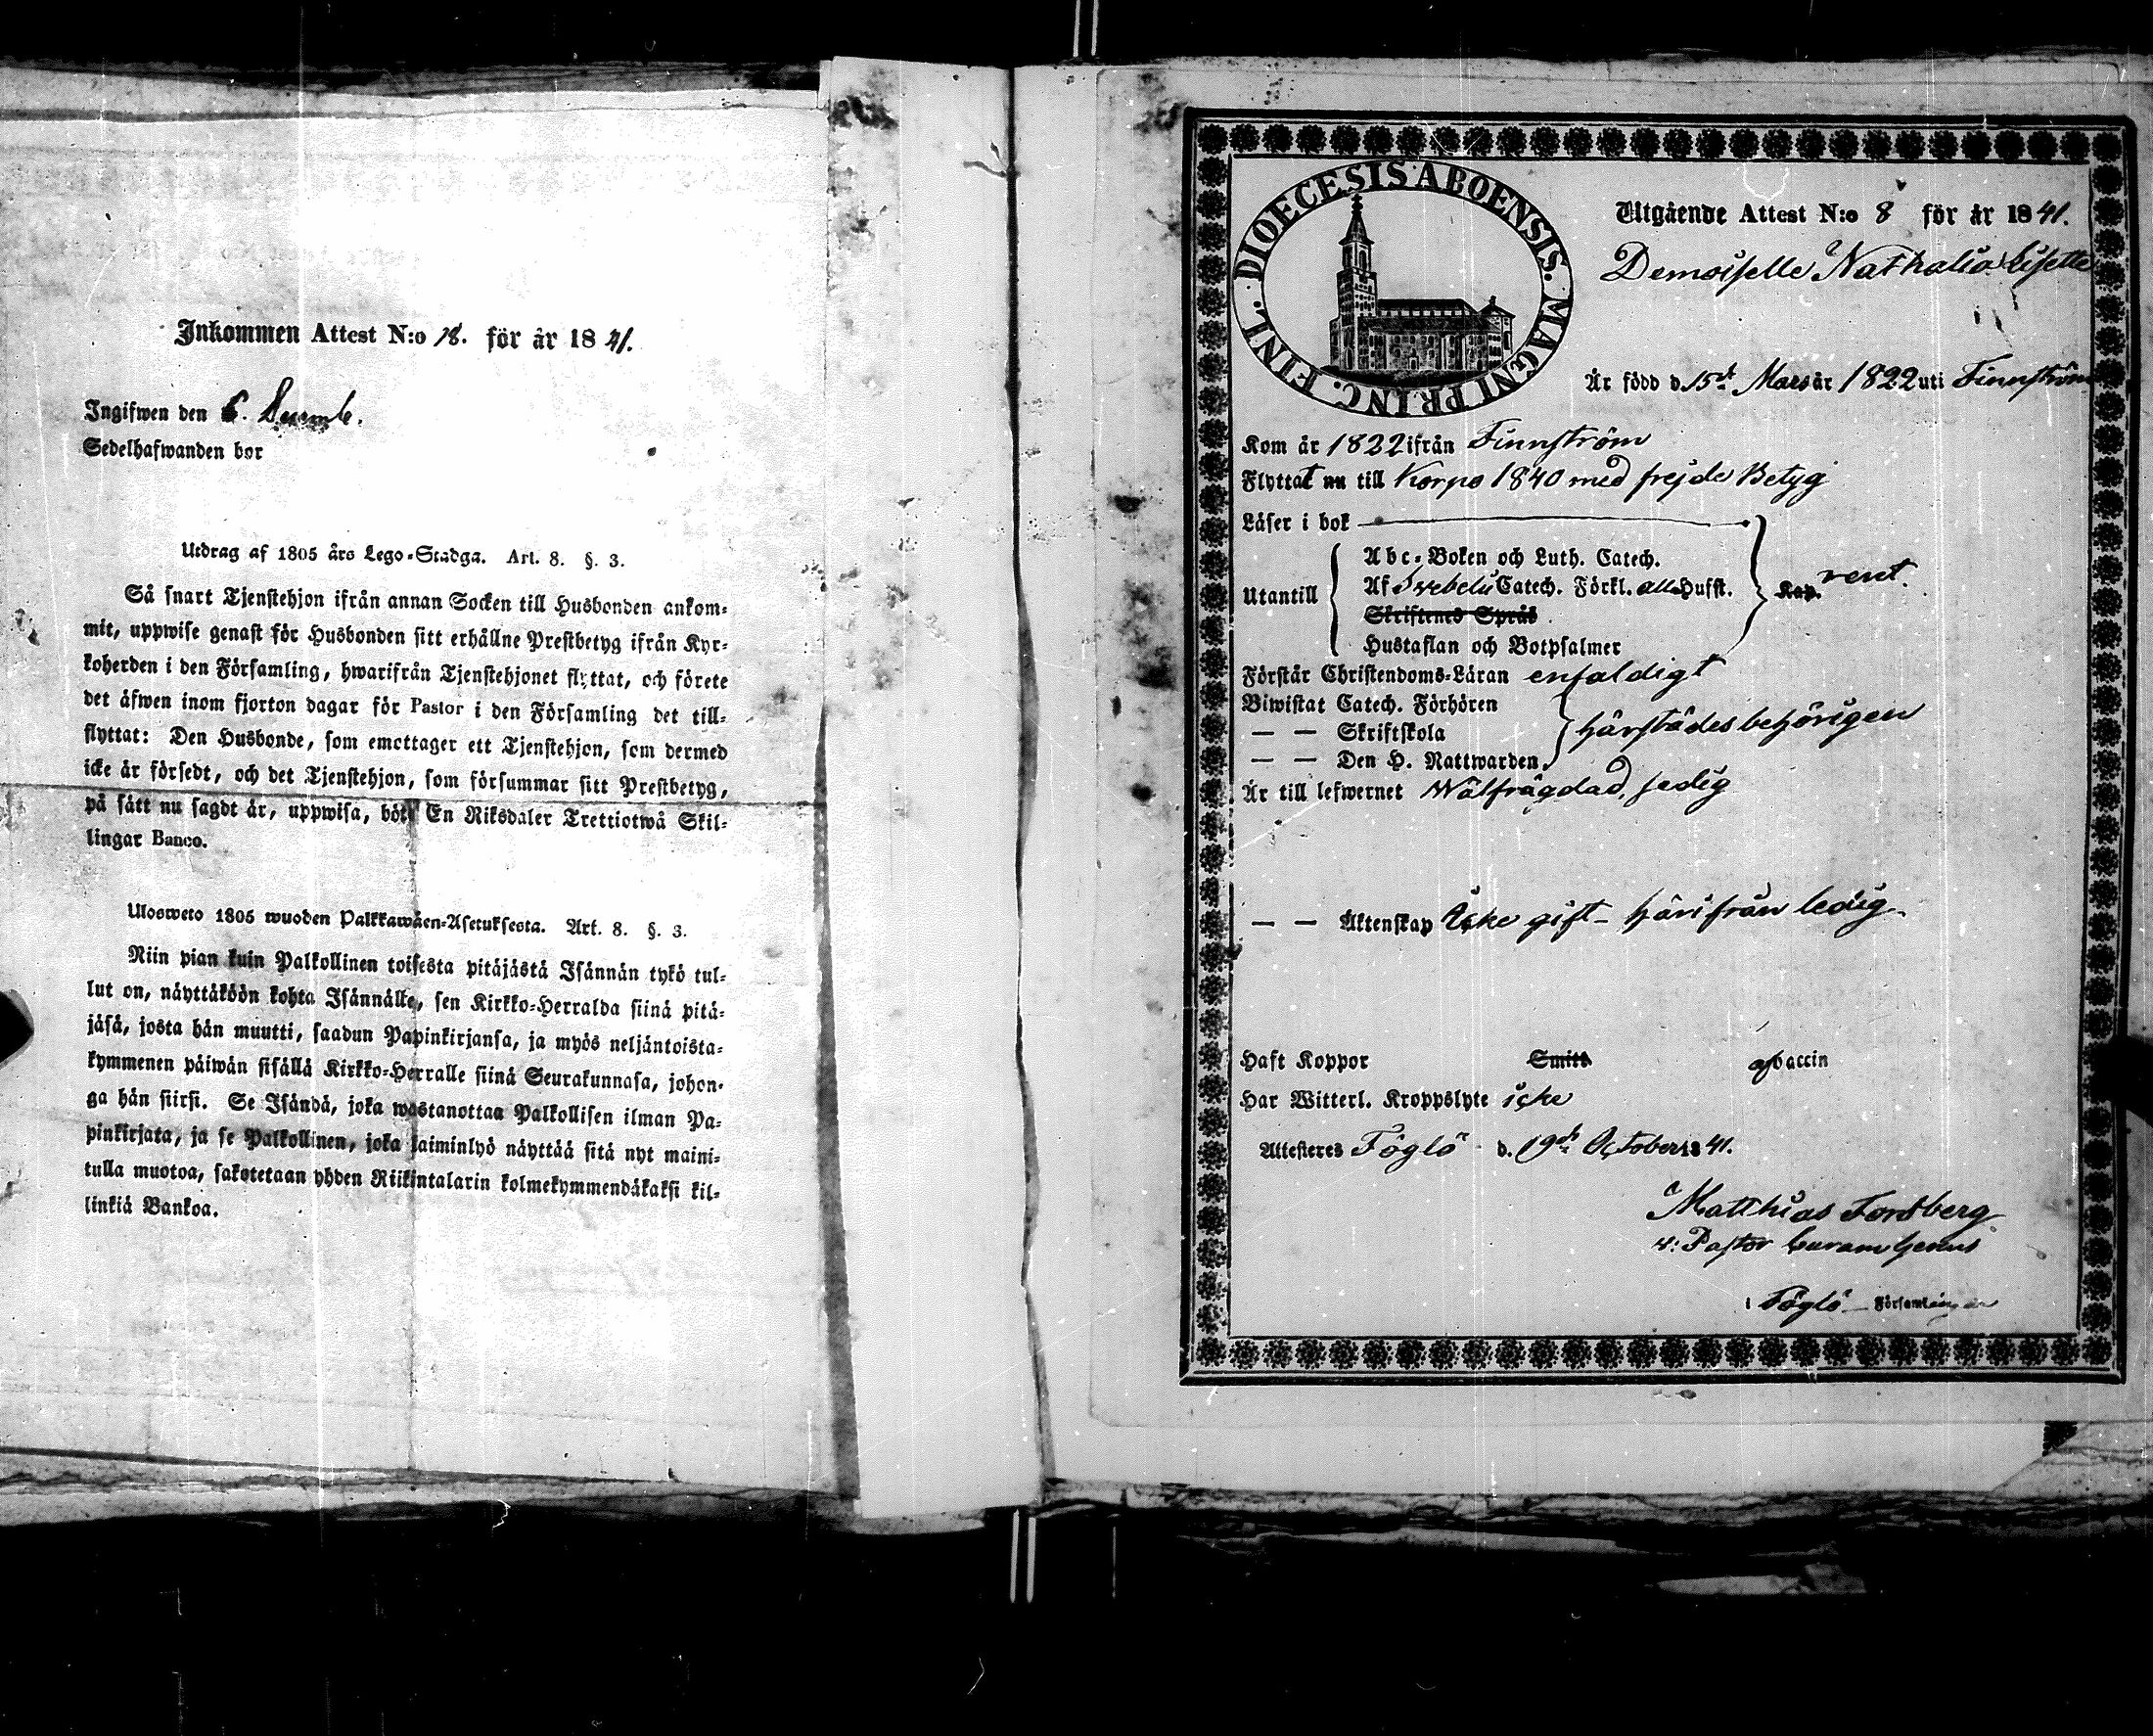 Inkommen Attest N:o 18. för år 1841.
Ingifwen den 6. Decemb.
Sedelhafwanden bor
Utdrag af 1805 års Lego-Stadga. Art. 8. §. 3.
Så snart Tjenstehjon ifrån annan Socken till Husbonden ankom-
mit, uppwise genast för Husbonden sitt erhållne Prestbetyg ifrån Kyr-
koherden i den Församling, hwarifrån Tjenstehjonet flyttat, och förete
det äfwen inom fjorton dagar för Pastor i den Församling det till-
flyttat: Den Husbonde, som emottager ett Tjenstehjon, som dermed
icke är försedt, och det Tjenstehjon, som försummar sitt Prestbetyg,
på sätt nu sagdt är, uppwisa, böte En Riksdaler Trettiotwå Skil-
lingar Banco.
Ulosweto 1805 wuoden Palkkawäen-Asetuksesta. Art. 8. §. 3.
Niin pian kuin Palkollinen toisesta pitäjästä Isännän tykö tul-
lut on, näyttäköön kohta Isännälle, sen Kirkko-Herralda siinä pitä-
jäsä, josta hän muutti, saadun Papinkirjansa, ja myös neljäntoista-
kymmenen päiwän sisällä Kirkko-Herralle siinä Seurakunnasa, johon-
ga hän siirsi. Se Isändä, joka wastanottaa Palkollisen ilman Pa-
pinkirjata, ja se Palkollinen, joka laiminlyö näyttää sitä nyt maini-
tulla muotoa, sakotetaan yhden Riikintalarin kolmekymmendäkaksi kil-
linkiä Bankoa.
DIOECESIS ABOENSIS. MAGNI PRINC. FINL.
Utgående Attest N:o 8 för år 1841.
Demoiselle Nathalia Lisette
Är född d. 15de Mars år 1822 uti Finnström
Kom år 1822 ifrån Finnström
Flyttat nu till Korpo 1840 med frejde Betyg
Läser i bok
Utantill
Abc-Boken och Luth. Catech.
Af Svebelii Catech. Förkl. alla Hufst.
Skriftenes Språk
Hustaflan och Botpsalmer
Kap. rent.
Förstår Christendoms-Läran enfaldigt
Biwistat Catech. Förhören
— — Skriftskola
— — Den H. Nattwarden
härstädes behörigen
Är till lefwernet Wälfrägdad, sedig
— — Äktenskap Icke gift - härifrån ledig
Haft Koppor Smitt af Vaccin
Har Witterl. Kroppslyte icke
Attesteres Föglö d. 19de October 1841.
Matthias Forsberg
v: Pastor Curam Gerens
i Föglö Församlingar